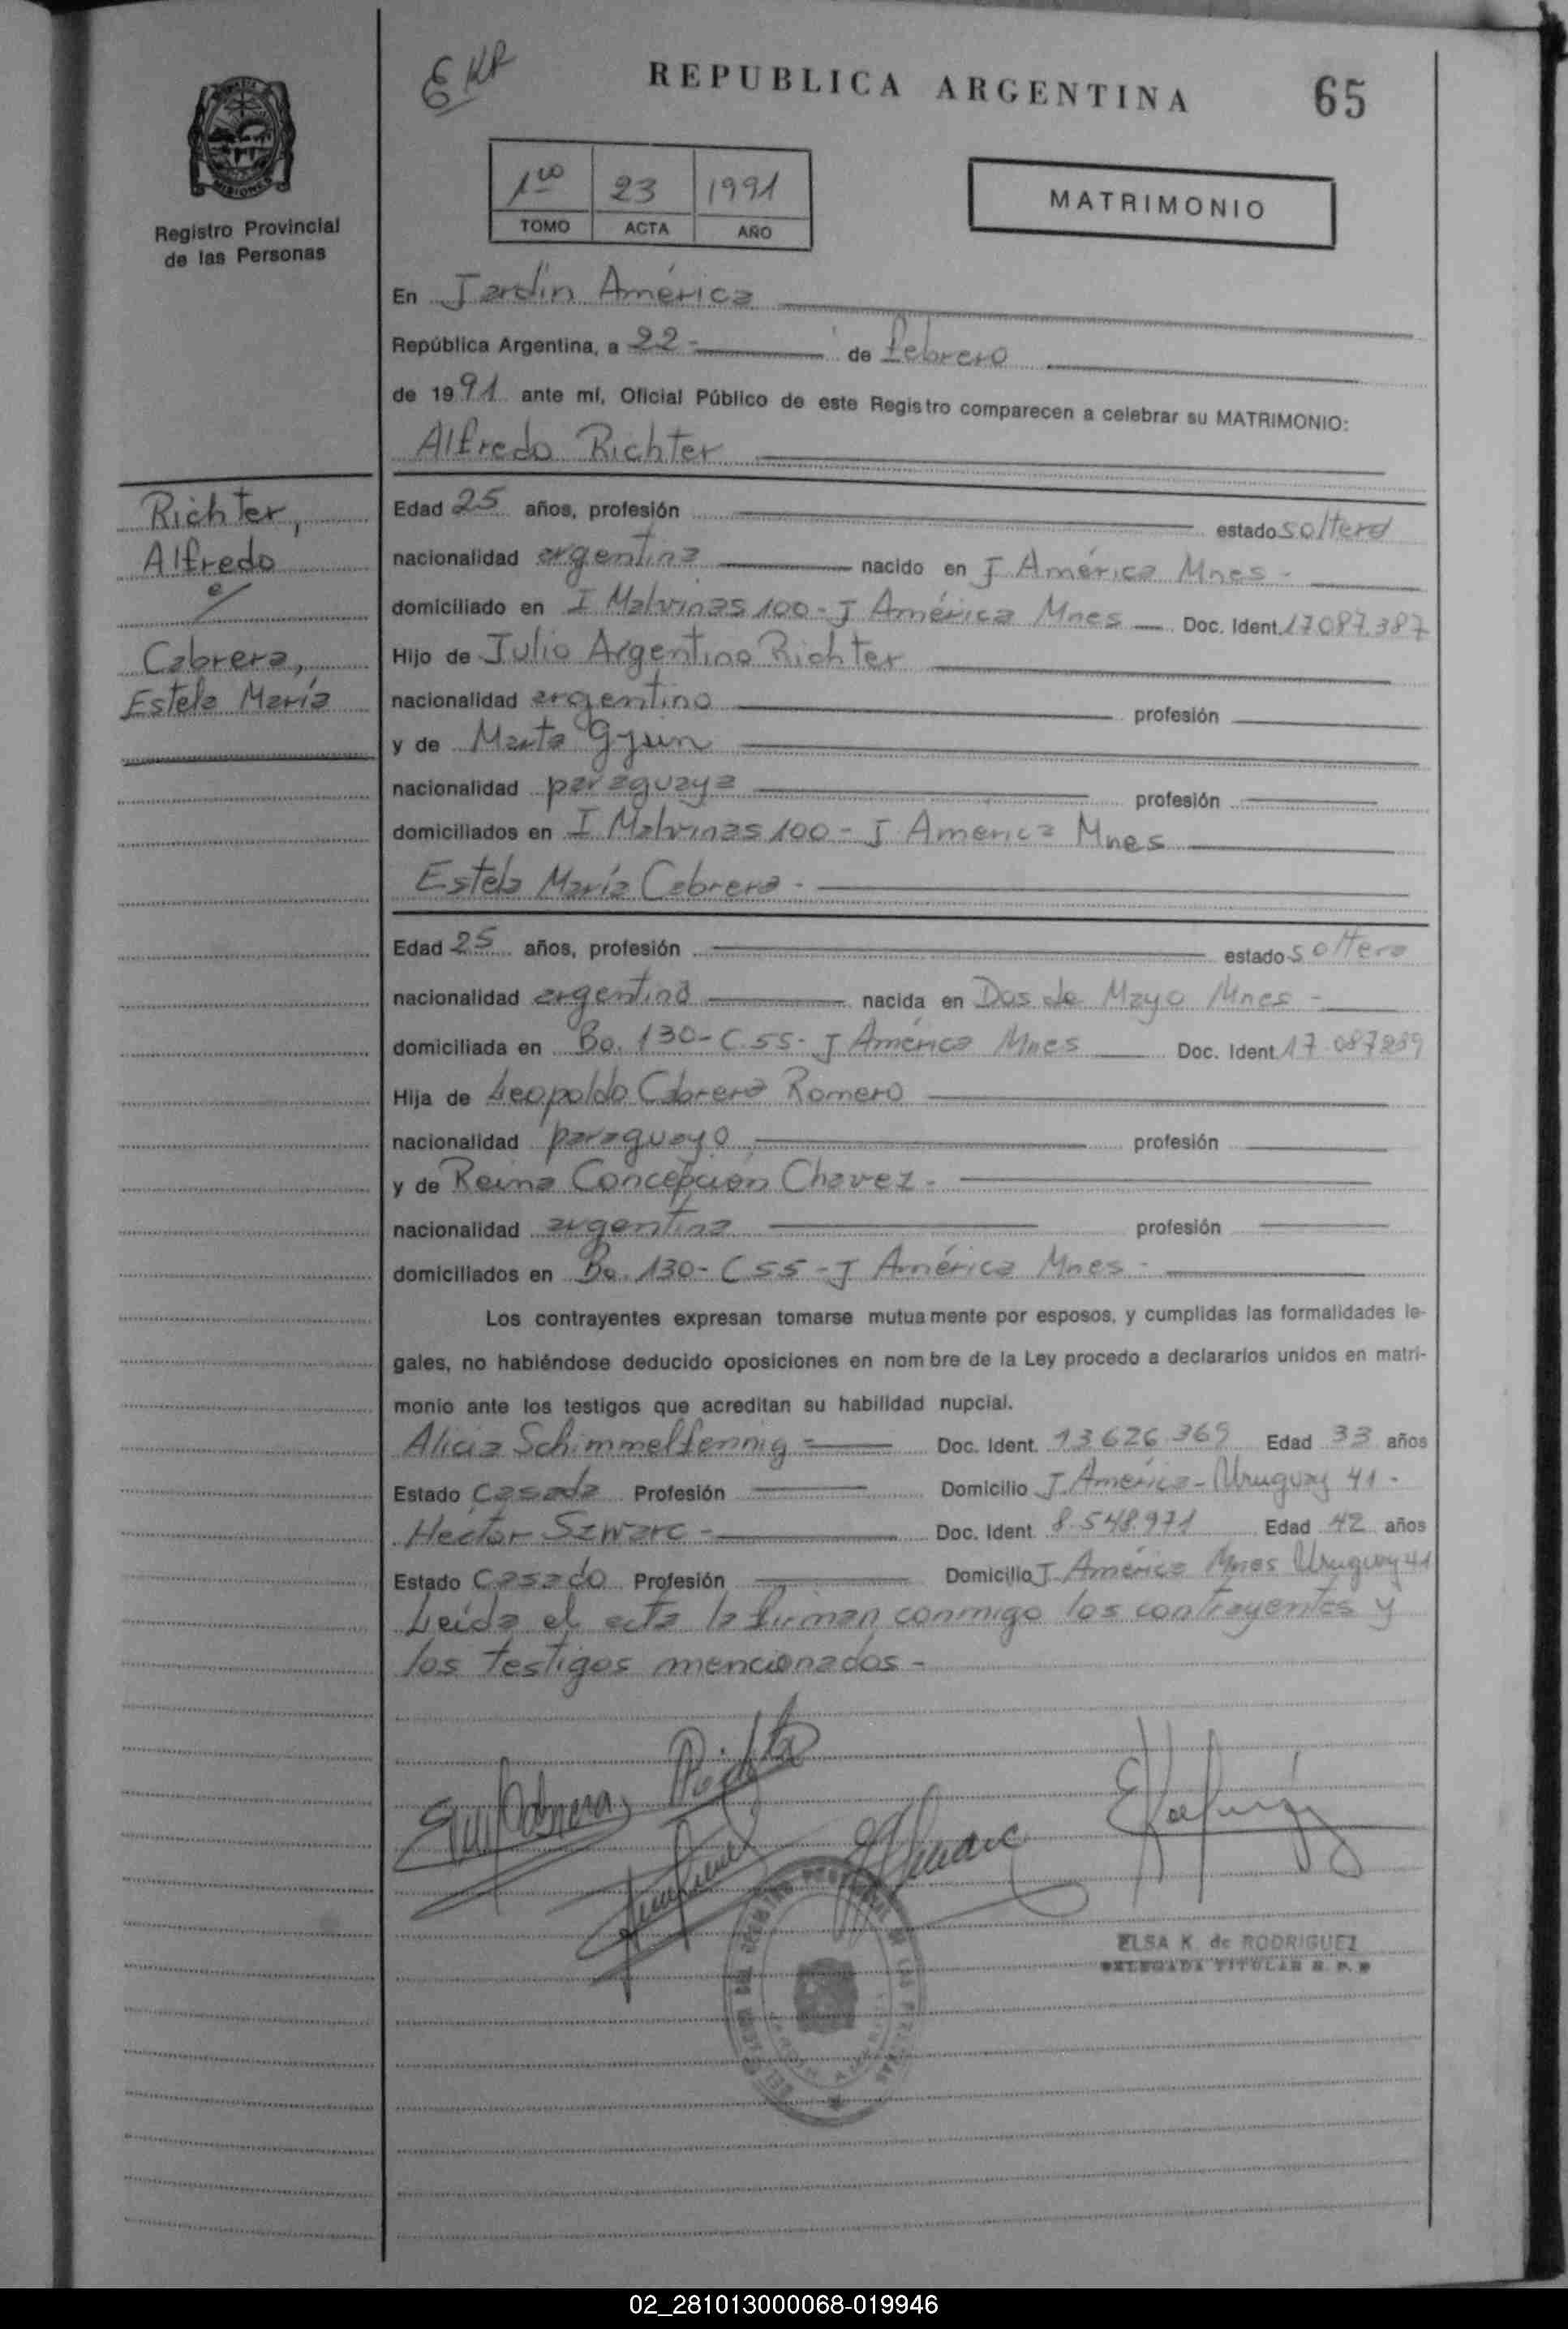 EKR
REPUBLICA ARGENTINA
65
MISIONES
Registro Provincial
de las Personas
1ro 23 1991
TOMO ACTA AÑO
MATRIMONIO
En Jardín América
República Argentina, a 22 - de febrero
de 1991 ante mí, Oficial Público de este Registro comparecen a celebrar su MATRIMONIO:
Alfredo Richter
Richter,
Alfredo
c/
Cabrera,
Estela María
Edad 25 años, profesión estado soltero
nacionalidad argentina nacido en J América Mnes -
domiciliado en I Malvinas 100 - J América Mnes Doc. Ident. 17087.387
Hijo de Julio Argentino Richter
nacionalidad argentino profesión
y de Marta
nacionalidad paraguaya profesión
domiciliados en I Malvinas 100 - J América Mnes
Estela María Cabrera -
Edad 25 años, profesión estado soltera
nacionalidad argentina nacida en Dos de Mayo Mnes -
domiciliada en Bo. 130 - C.55 - J América Mnes Doc. Ident. 17
Hija de Leopoldo Cabrera Romero
nacionalidad paraguayo profesión
y de Reina Concepción Chavez -
nacionalidad argentina profesión
domiciliados en Bo. 130 - C 55 - J América Mnes -
Los contrayentes expresan tomarse mutuamente por esposos, y cumplidas las formalidades le-
gales, no habiéndose deducido oposiciones en nombre de la Ley procedo a declararlos unidos en matri-
monio ante los testigos que acreditan su habilidad nupcial.
Alicia Schimmelfennig - Doc. Ident. 13626369 Edad 33 años
Estado Casada Profesión Domicilio J. América - Uruguay 41 -
Héctor Szwarc - Doc. Ident. 8.548.971 Edad 42 años
Estado Casado Profesión Domicilio J. América Mnes Uruguay 41
Leída el acta la firman conmigo los contrayentes y
los testigos mencionados -
Cabrera Richter
ELSA K. de RODRIGUEZ
DELEGADA TITULAR R. P. P.
02_281013000068-019946